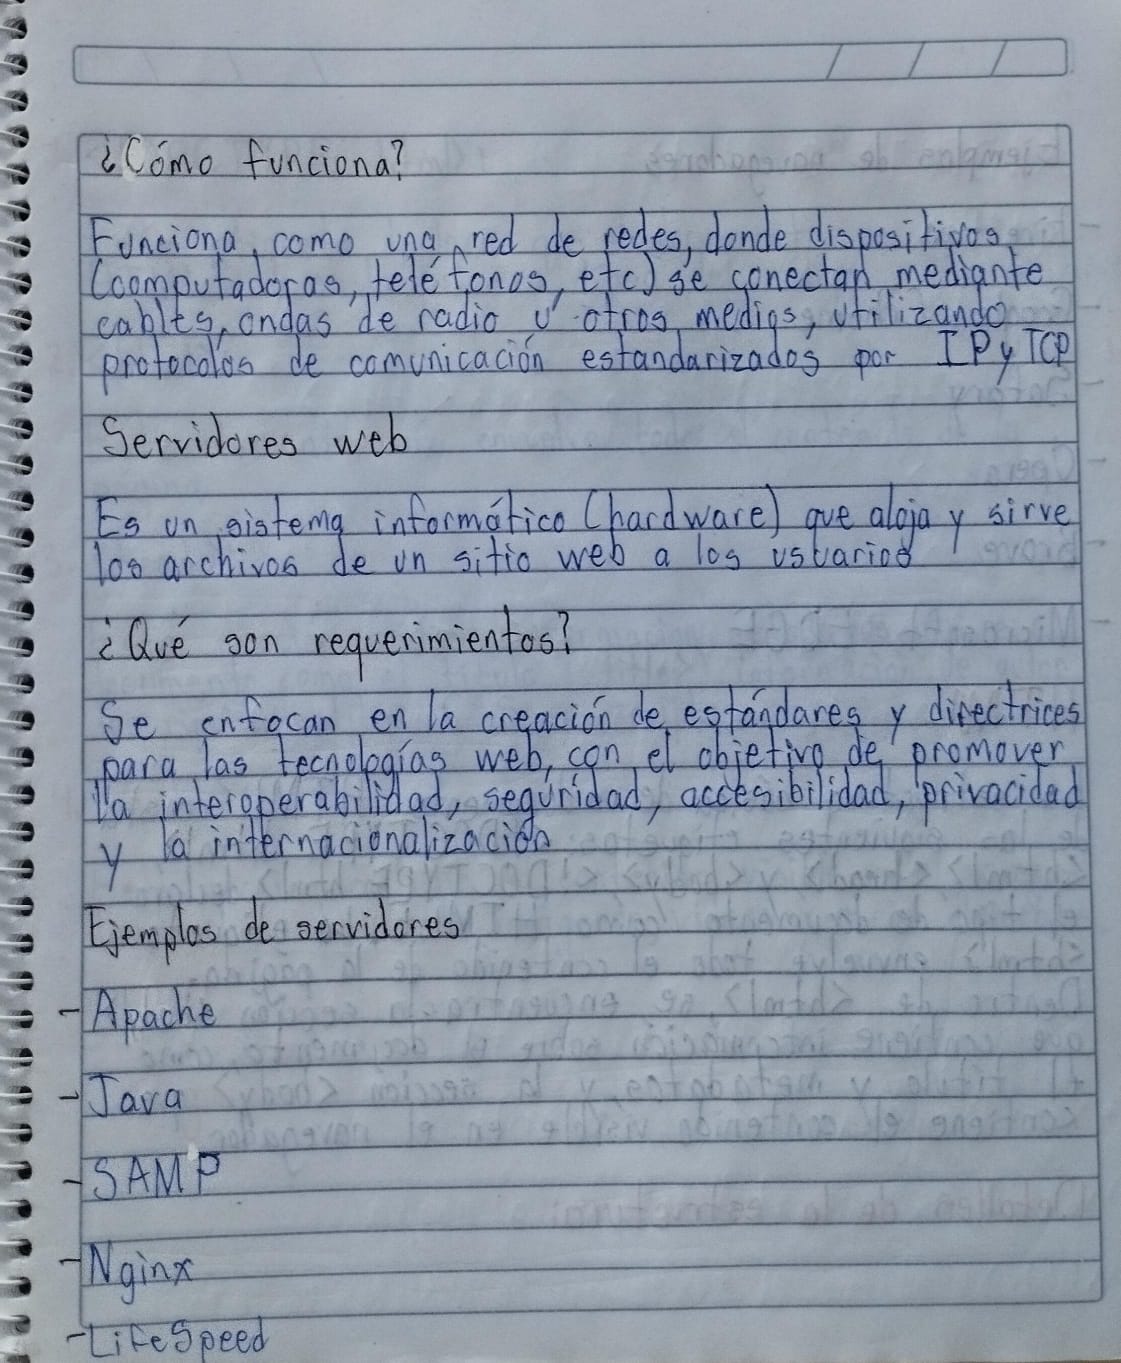 ¿Cómo funciona?
Funciona, como una red de redes, donde dispositivos
(computadoras, teléfonos, etc) se conectan mediante
cables, ondas de radio u otros medios, utilizando
protocolos de comunicación estandarizados por IP y TCP
Servidores web
Es un sistema informático (hardware) que aloja y sirve
los archivos de un sitio web a los usuarios
¿Qué son requerimientos?
Se enfocan en la creación de estándares y directrices
para las tecnologías web, con el objetivo de promover
la interoperabilidad, seguridad, accesibilidad, privacidad
y la internacionalización
Ejemplos de servidores
- Apache
- Java
- SAMP
- Nginx
- LifeSpeed